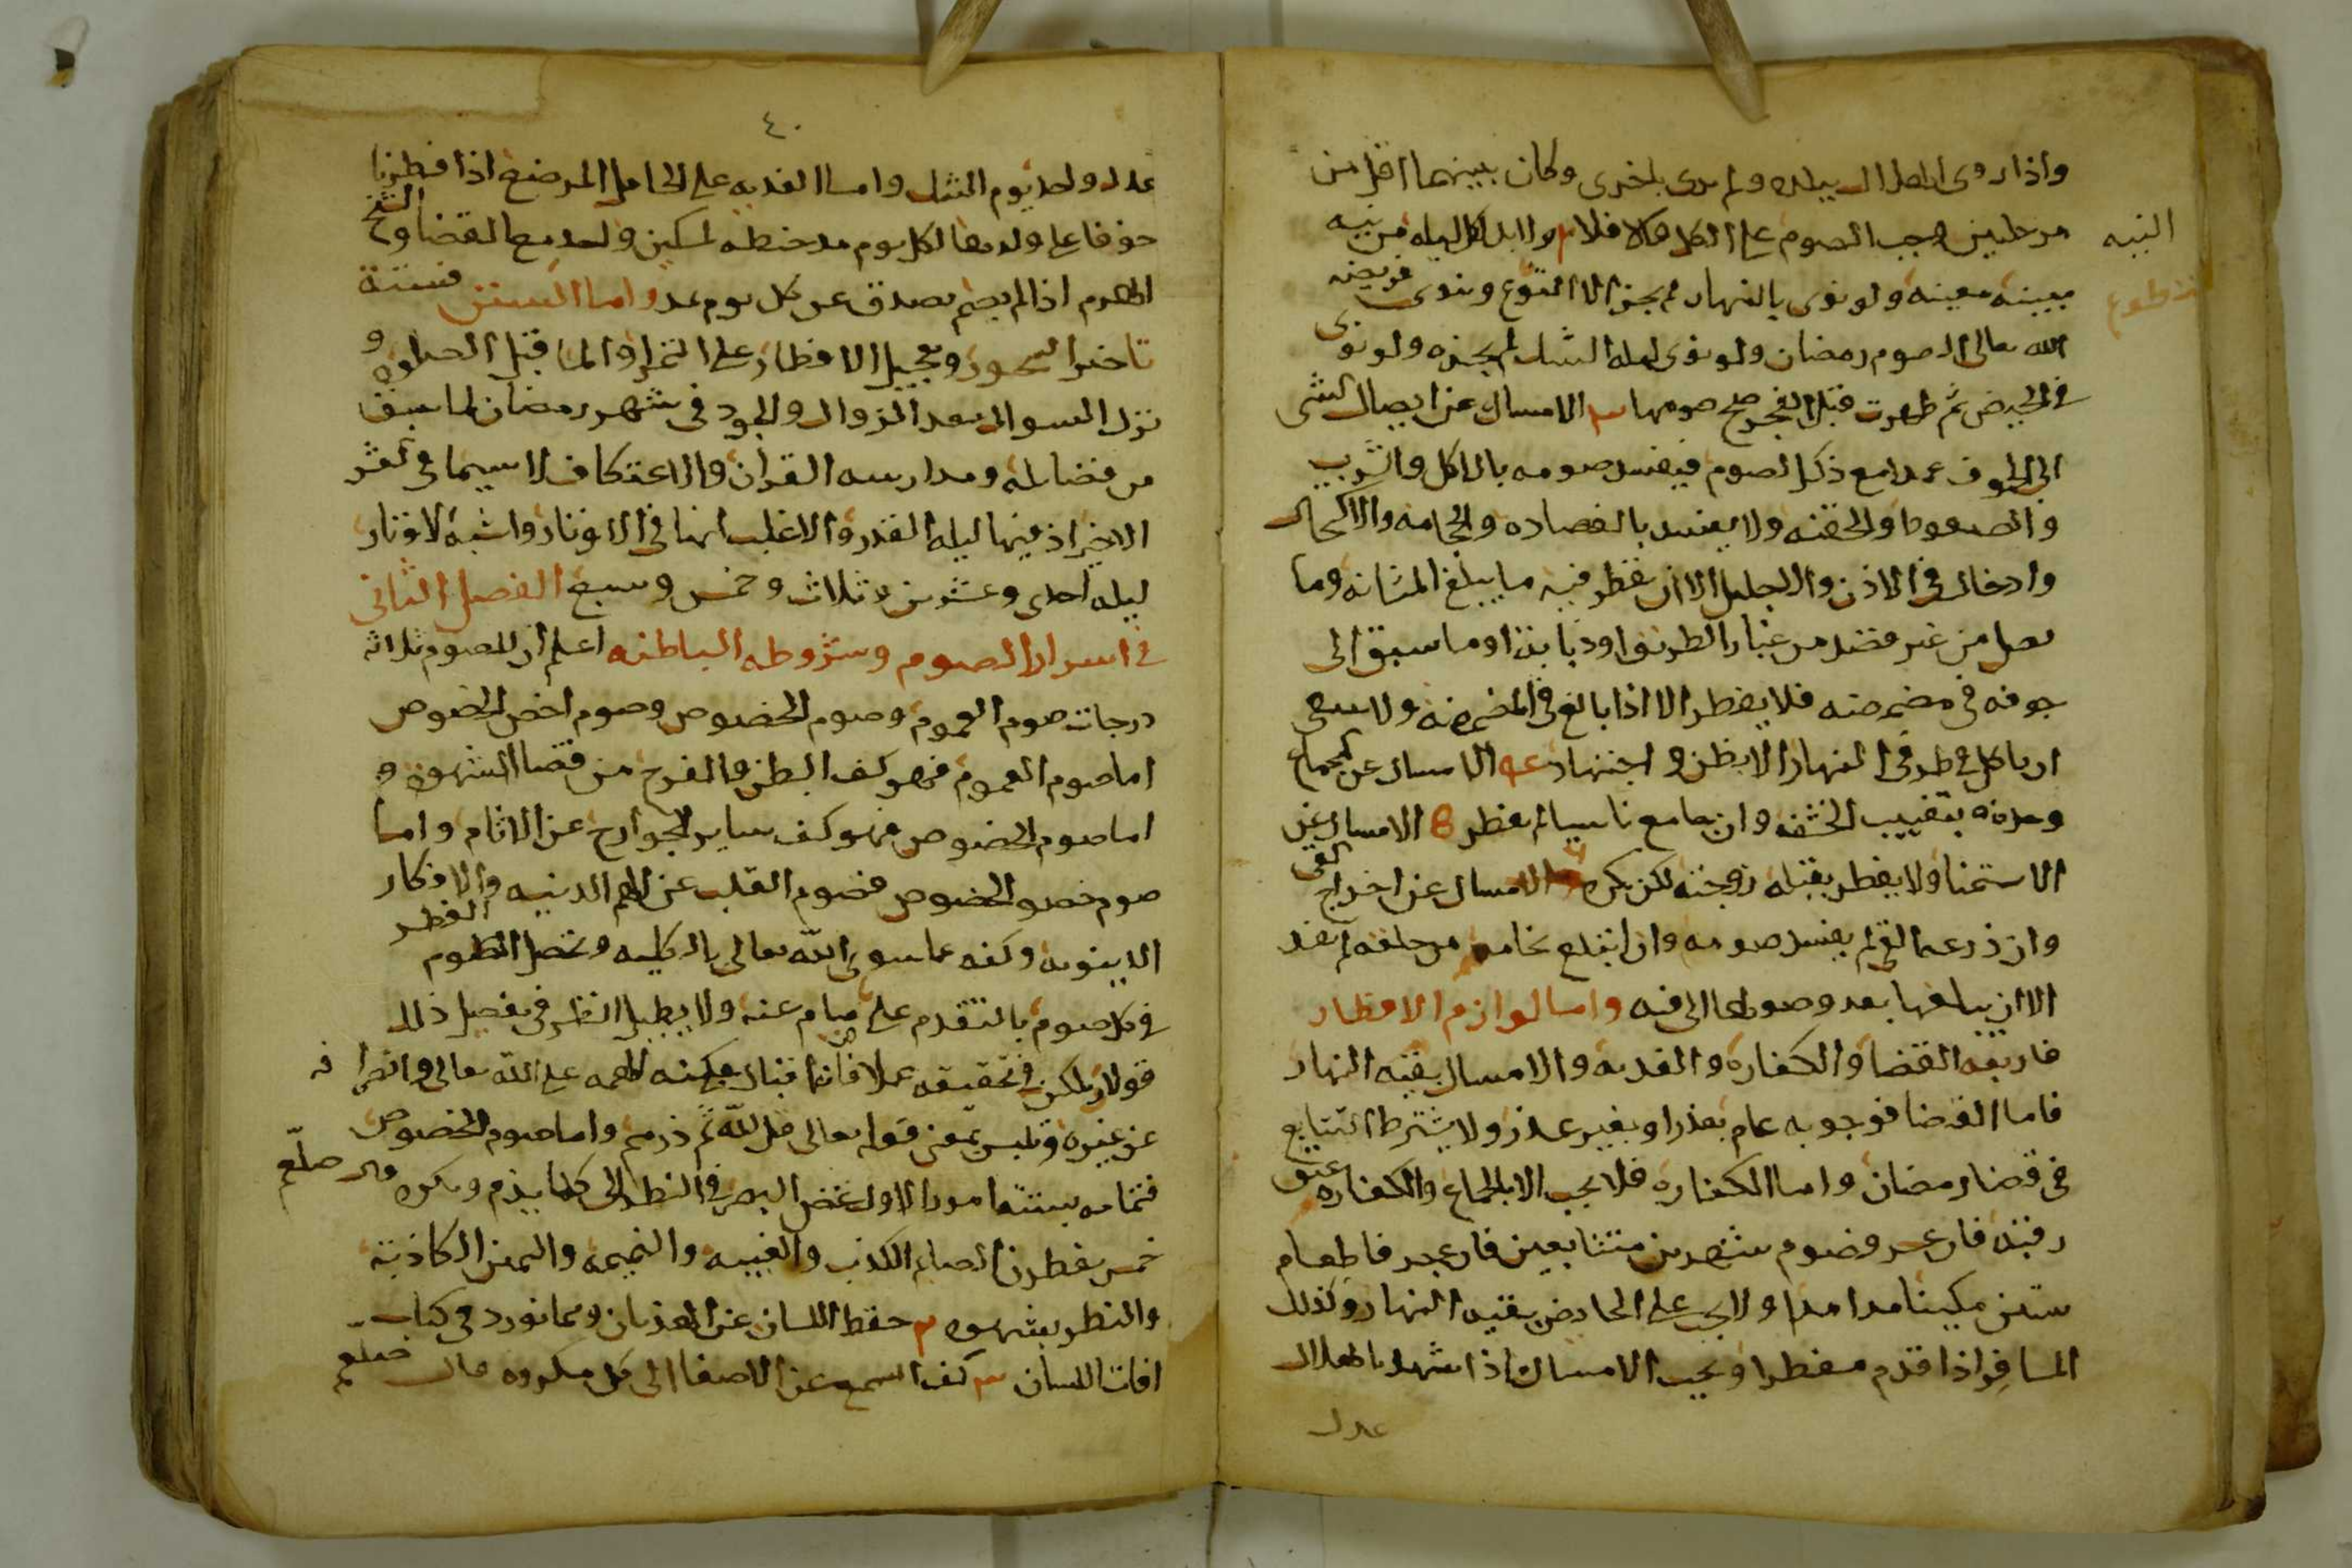 واذا روى الهلال ببلده ولم يرى باخرى وكان بينهما اقل من
مرحلتين وجب الصوم على الكل والا فلا ٢ ولا بد لكل ليله من نيه
النيه
مبيته معينه ولو نوى بالنهار لم يجز الا التطوع وينوى فريضه
تطوع
الله تعالى صوم رمضان ولو نوى ليله الشك لم يجزه ولو نوى
في الحيض ثم طهرت قبل الفجر صح صومها ٣ الامساك عن ايصال شى
الى الجوف عمدا مع ذكر الصوم فيفسد صومه بالاكل والشرب
والصعوط والحقنه ولا يفسد بالفصاده والحجامه والاكتحال
وادخال في الاذن والاحليل الا ان يقطر فيه ما يبلغ المثانه وما
يصل من غير قصد من غبار الطريق او ذبابة او ما سبق الى
جوفه في مضمضته فلا يفطر الا اذا بالغ في المضمضه ولا ينبغي
ان ياكل في طرفي النهار الا بظن واجتهاد ٤ الامساك عن الجماع
وحده بتغييب الحشفه وان جامع ناسيا لم يفطر ٥ الامساك عن
الاستمنا ولا يفطر بقبلة زوجته لكن يكره ٦ الامساك عن اخراج القى
وان ذرعه القى لم يفسد صومه وان ابتلع نخامه من حلقه لم يفسد
الا ان يبلعها بعد وصولها الى فيه واما لوازم الافطار
فاربعه القضا والكفاره والفديه والامساك بقيه النهار
فاما القضا فوجوبه عام بعذر او بغير عذر ولا يشترط التتابع
في قضا رمضان واما الكفاره فلا يجب الا بالجماع والكفاره عتق
رقبة فان عسر فصوم شهرين متتابعين فان عجز فاطعام
ستين مسكينا مدا مدا ولا يجب على الحايض بقيه النهار وكذلك
المسافر اذا قدم مفطرا ويجب الامساك اذا شهد بالهلال
عدل
٤٠
عدل واحد يوم الشك واما الفديه على الحامل المرضع اذا فطرتا
خوفا على ولدهما لكل يوم مد حنطه لمسكين واحد مع القضا والشيخ
الهرم اذا لم يصم تصدق عن كل يوم مد واما السنن فستة
تاخير السحور وتعجيل الافطار على التمر او الما قبل الصلوه و
ترك السواك بعد الزوال والجود في شهر رمضان لما سبق
من فضايله ومدارسه القران والاعتكاف لاسيما في العشر
الاخير اذ فيها ليله القدر والاغلب انها في الاوتار واشبه الاوتار
ليله احدى وعشرين وثلاث وخمس وسبع الفصل الثاني
في اسرار الصوم وشروطه الباطنه اعلم ان للصوم ثلاثه
درجات صوم العموم وصوم الخصوص وصوم اخص الخصوص
اما صوم العموم فهو كف البطن والفرج من قضا الشهوه و
اما صوم الخصوص فهو كف ساير الجوارح عن الاثام واما
صوم خصو الخصوص فصوم القلب عن الهمم الدنيه والافكار
الدينويه وكفه عما سوى الله تعالى بالكليه ويحصل الفطر
في كل صوم بالتقدم على ولا يطيل النظر في تفصيل ذلك
قولا ولكن في تحقيقه عملا فانما اقبال بكنه الهمه على الله تعالى وانصرافه
عن غيره وتلبس بمعنى قوله تعالى قل الله ثم ذرهم واما صوم الخصوص
فتمامه بستة امور الاول غض البصر في النظر الى كلما يذم ويكره قال صلعم
خمس يفطرن الصايم الكذب والغيبه والنميمه واليمين الكاذبة
والنظر بشهوه ٢ حفظ اللسان عن الهذيان ومما نورد في كتاب
افات اللسان ٣ كف السمع عن الاصغا الى كل مكروه قال صلعم